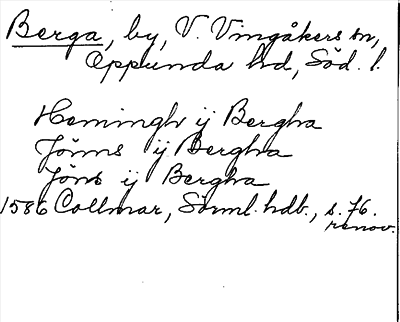 Berga, by, V. Vingåkers sn,
Oppunda hd, Söd. l.
Hemingh ij Bergha
Jöns ij Bergha
Jöns ij Bergha
1586 Collmar, Sörml. hdb., s. 76.
renov.